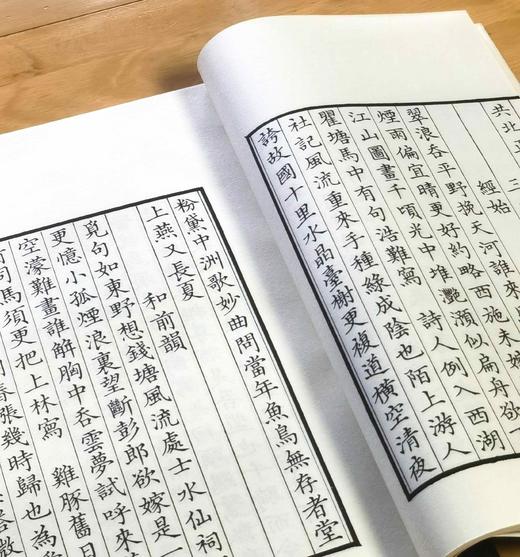 共北
三
經始
翠浪吞平野挽天河誰來
煙雨偏宜晴更好約略西施未嫁
江山圖畫千頃光中堆灩澦似扁舟欲
瞿塘馬中有句浩難寫 詩人例入西湖
社記風流重來手種綠成陰也陌上游人
誇故國十里水晶臺榭更複道橫空清夜
粉黛中洲歌妙曲問當年魚鳥無存者堂
上燕又長夏
和前韻
覓句如東野想錢塘風流處士水仙祠
更憶小孤煙浪裏望斷彭郎欲嫁是一
空濛難畫誰解胸中吞雲夢試呼來
司馬須更把上林寫 雞豚舊日
漲幾時歸也為